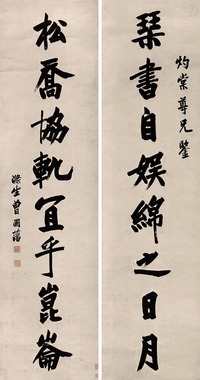 灼棠尊兄鑒
琴書自娛綿之日月
松喬協軌宜乎崑崙
滌生曾國藩